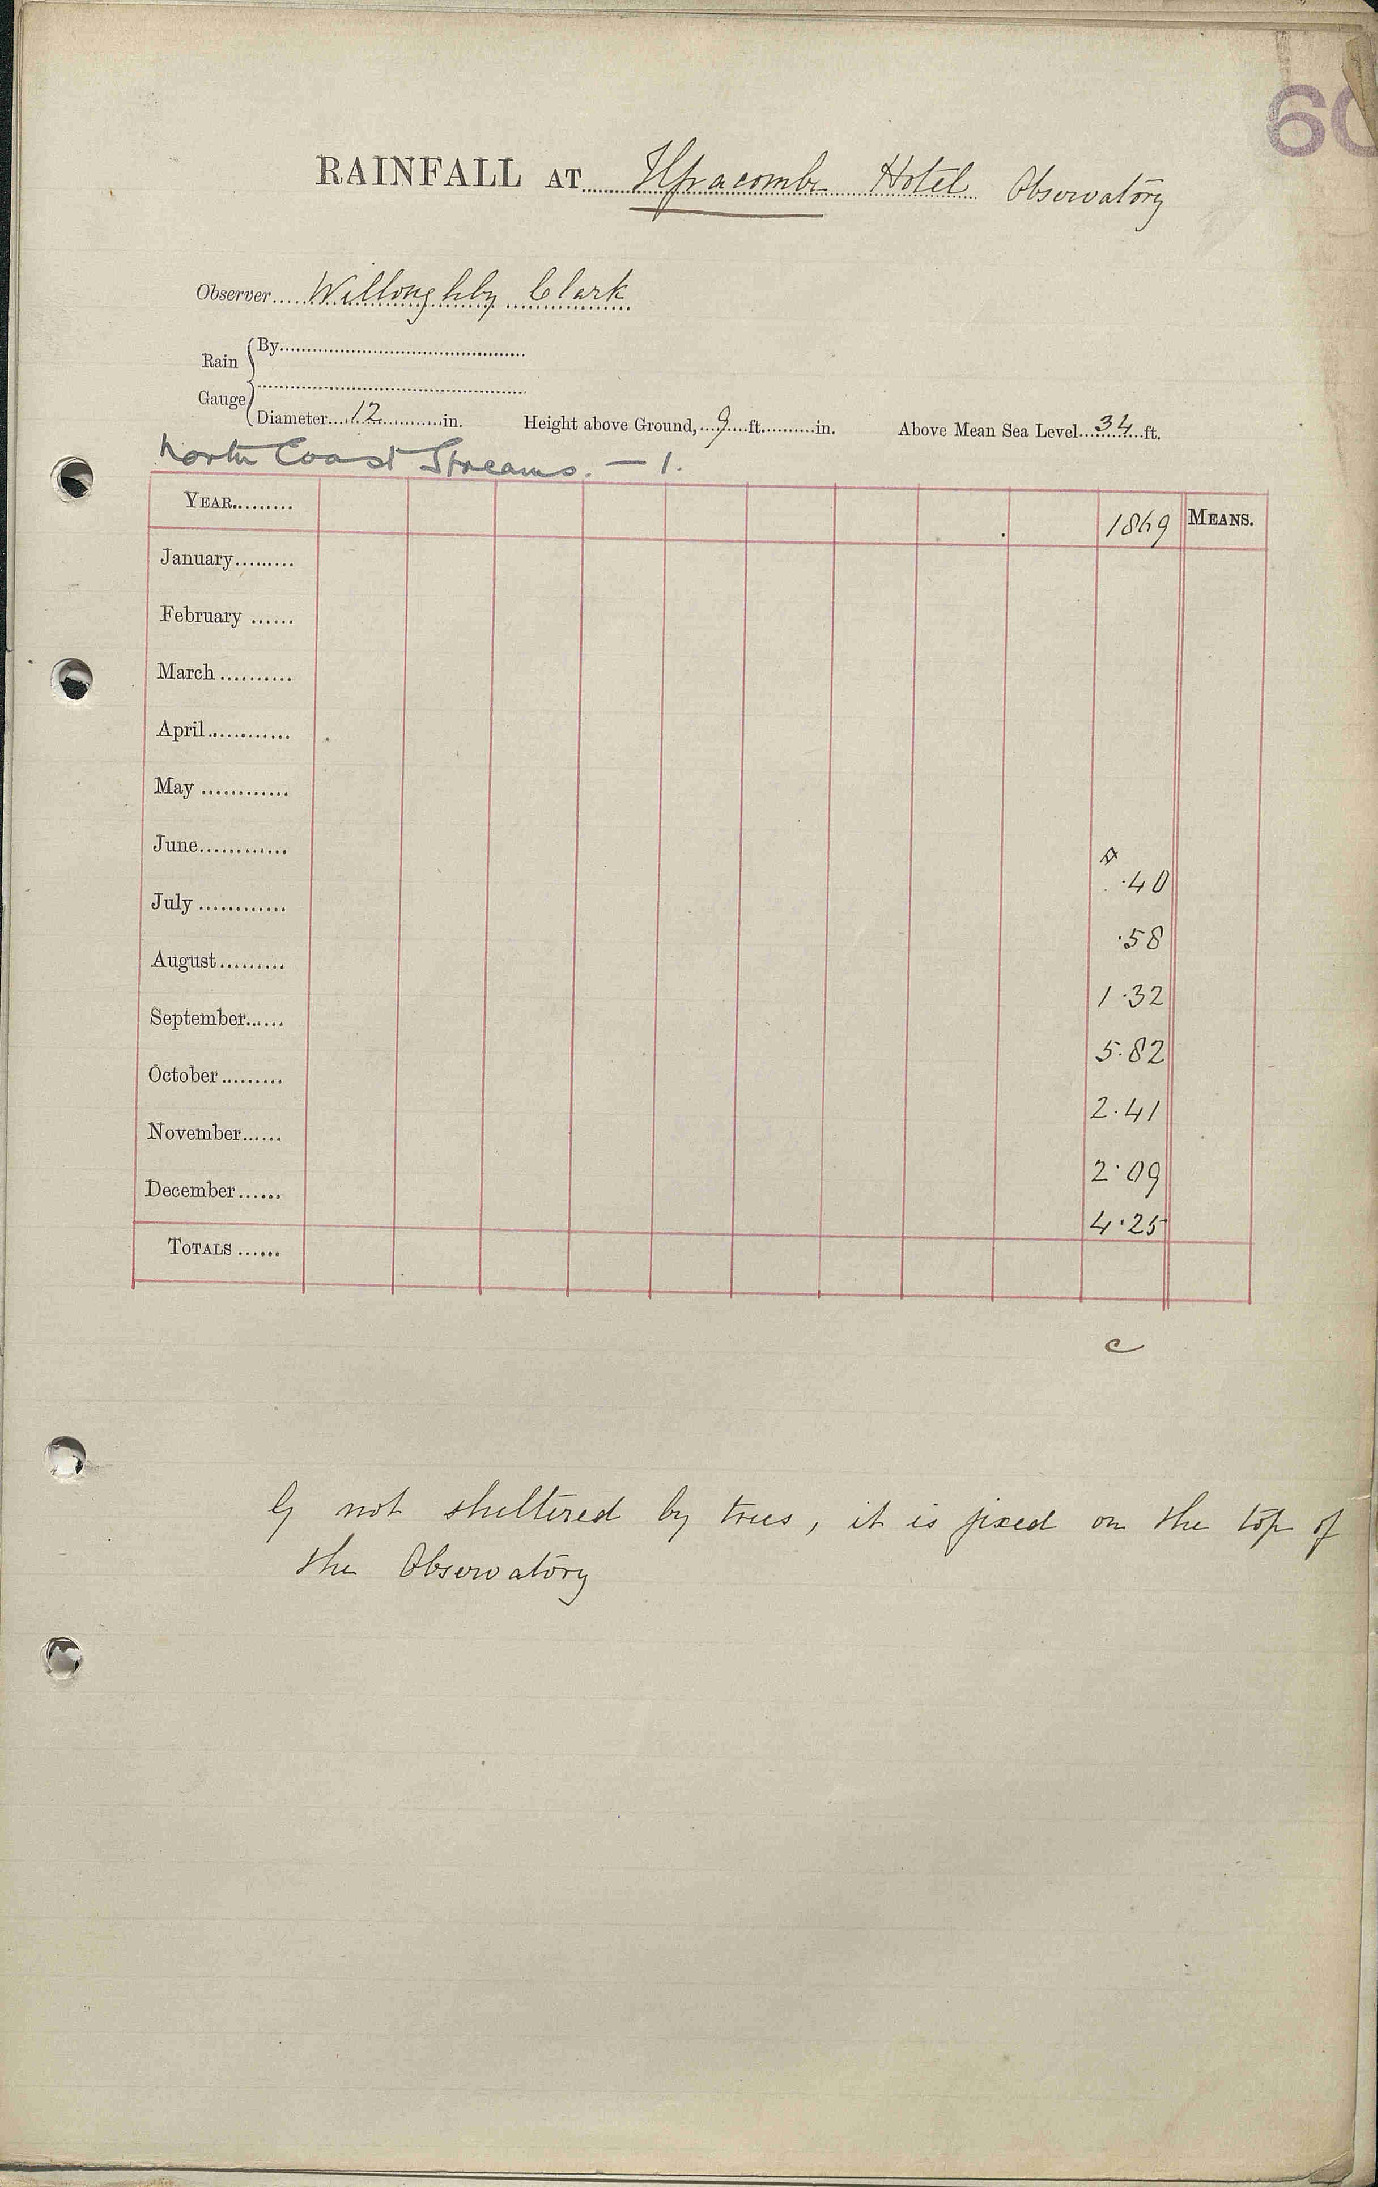 60
RAINFALL AT Ilfracombe Hotel Observatory
Observer Willoughby Clark
Rain Gauge
By
Diameter 12 in. Height above Ground, 9 ft. in. Above Mean Sea Level 34 ft.
North Coast Streams. — 1.
YEAR 1869 MEANS.
January
February
March
April
May
June .40
July .58
August 1.32
September 5.82
October 2.41
November 2.09
December 4.25
TOTALS
c
G not sheltered by trees, it is fixed on the top of
the Observatory